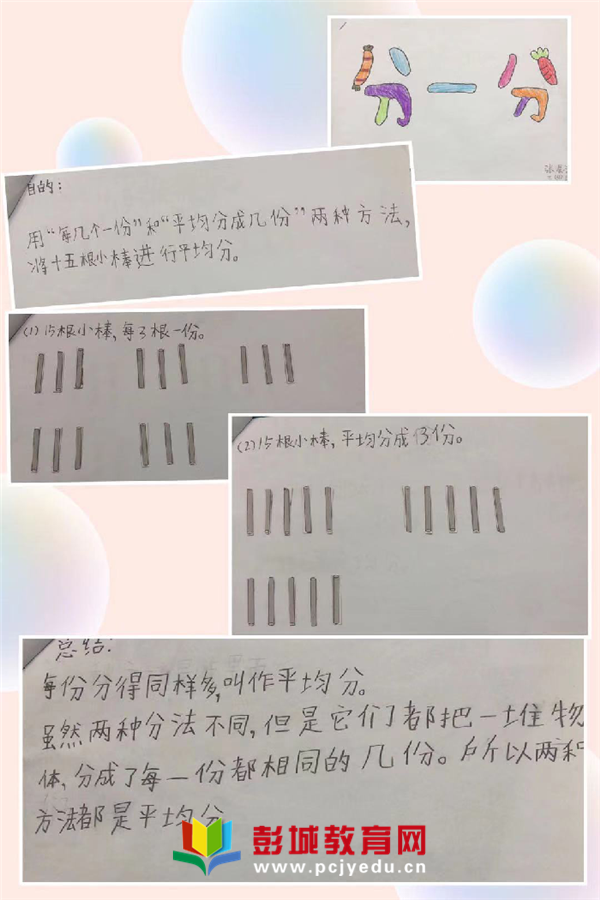 分一分
目的：
用“每几个一份”和“平均分成几份”两种方法，
将十五根小棒进行平均分。
(1)15根小棒，每3根一份。
(2)15根小棒，平均分成3份。
总结：
每份分得同样多，叫作平均分。
虽然两种分法不同，但是它们都把一堆物
体，分成了每一份都相同的几份。所以两种
方法都是平均分
彭城教育网
www.pcjyedu.cn